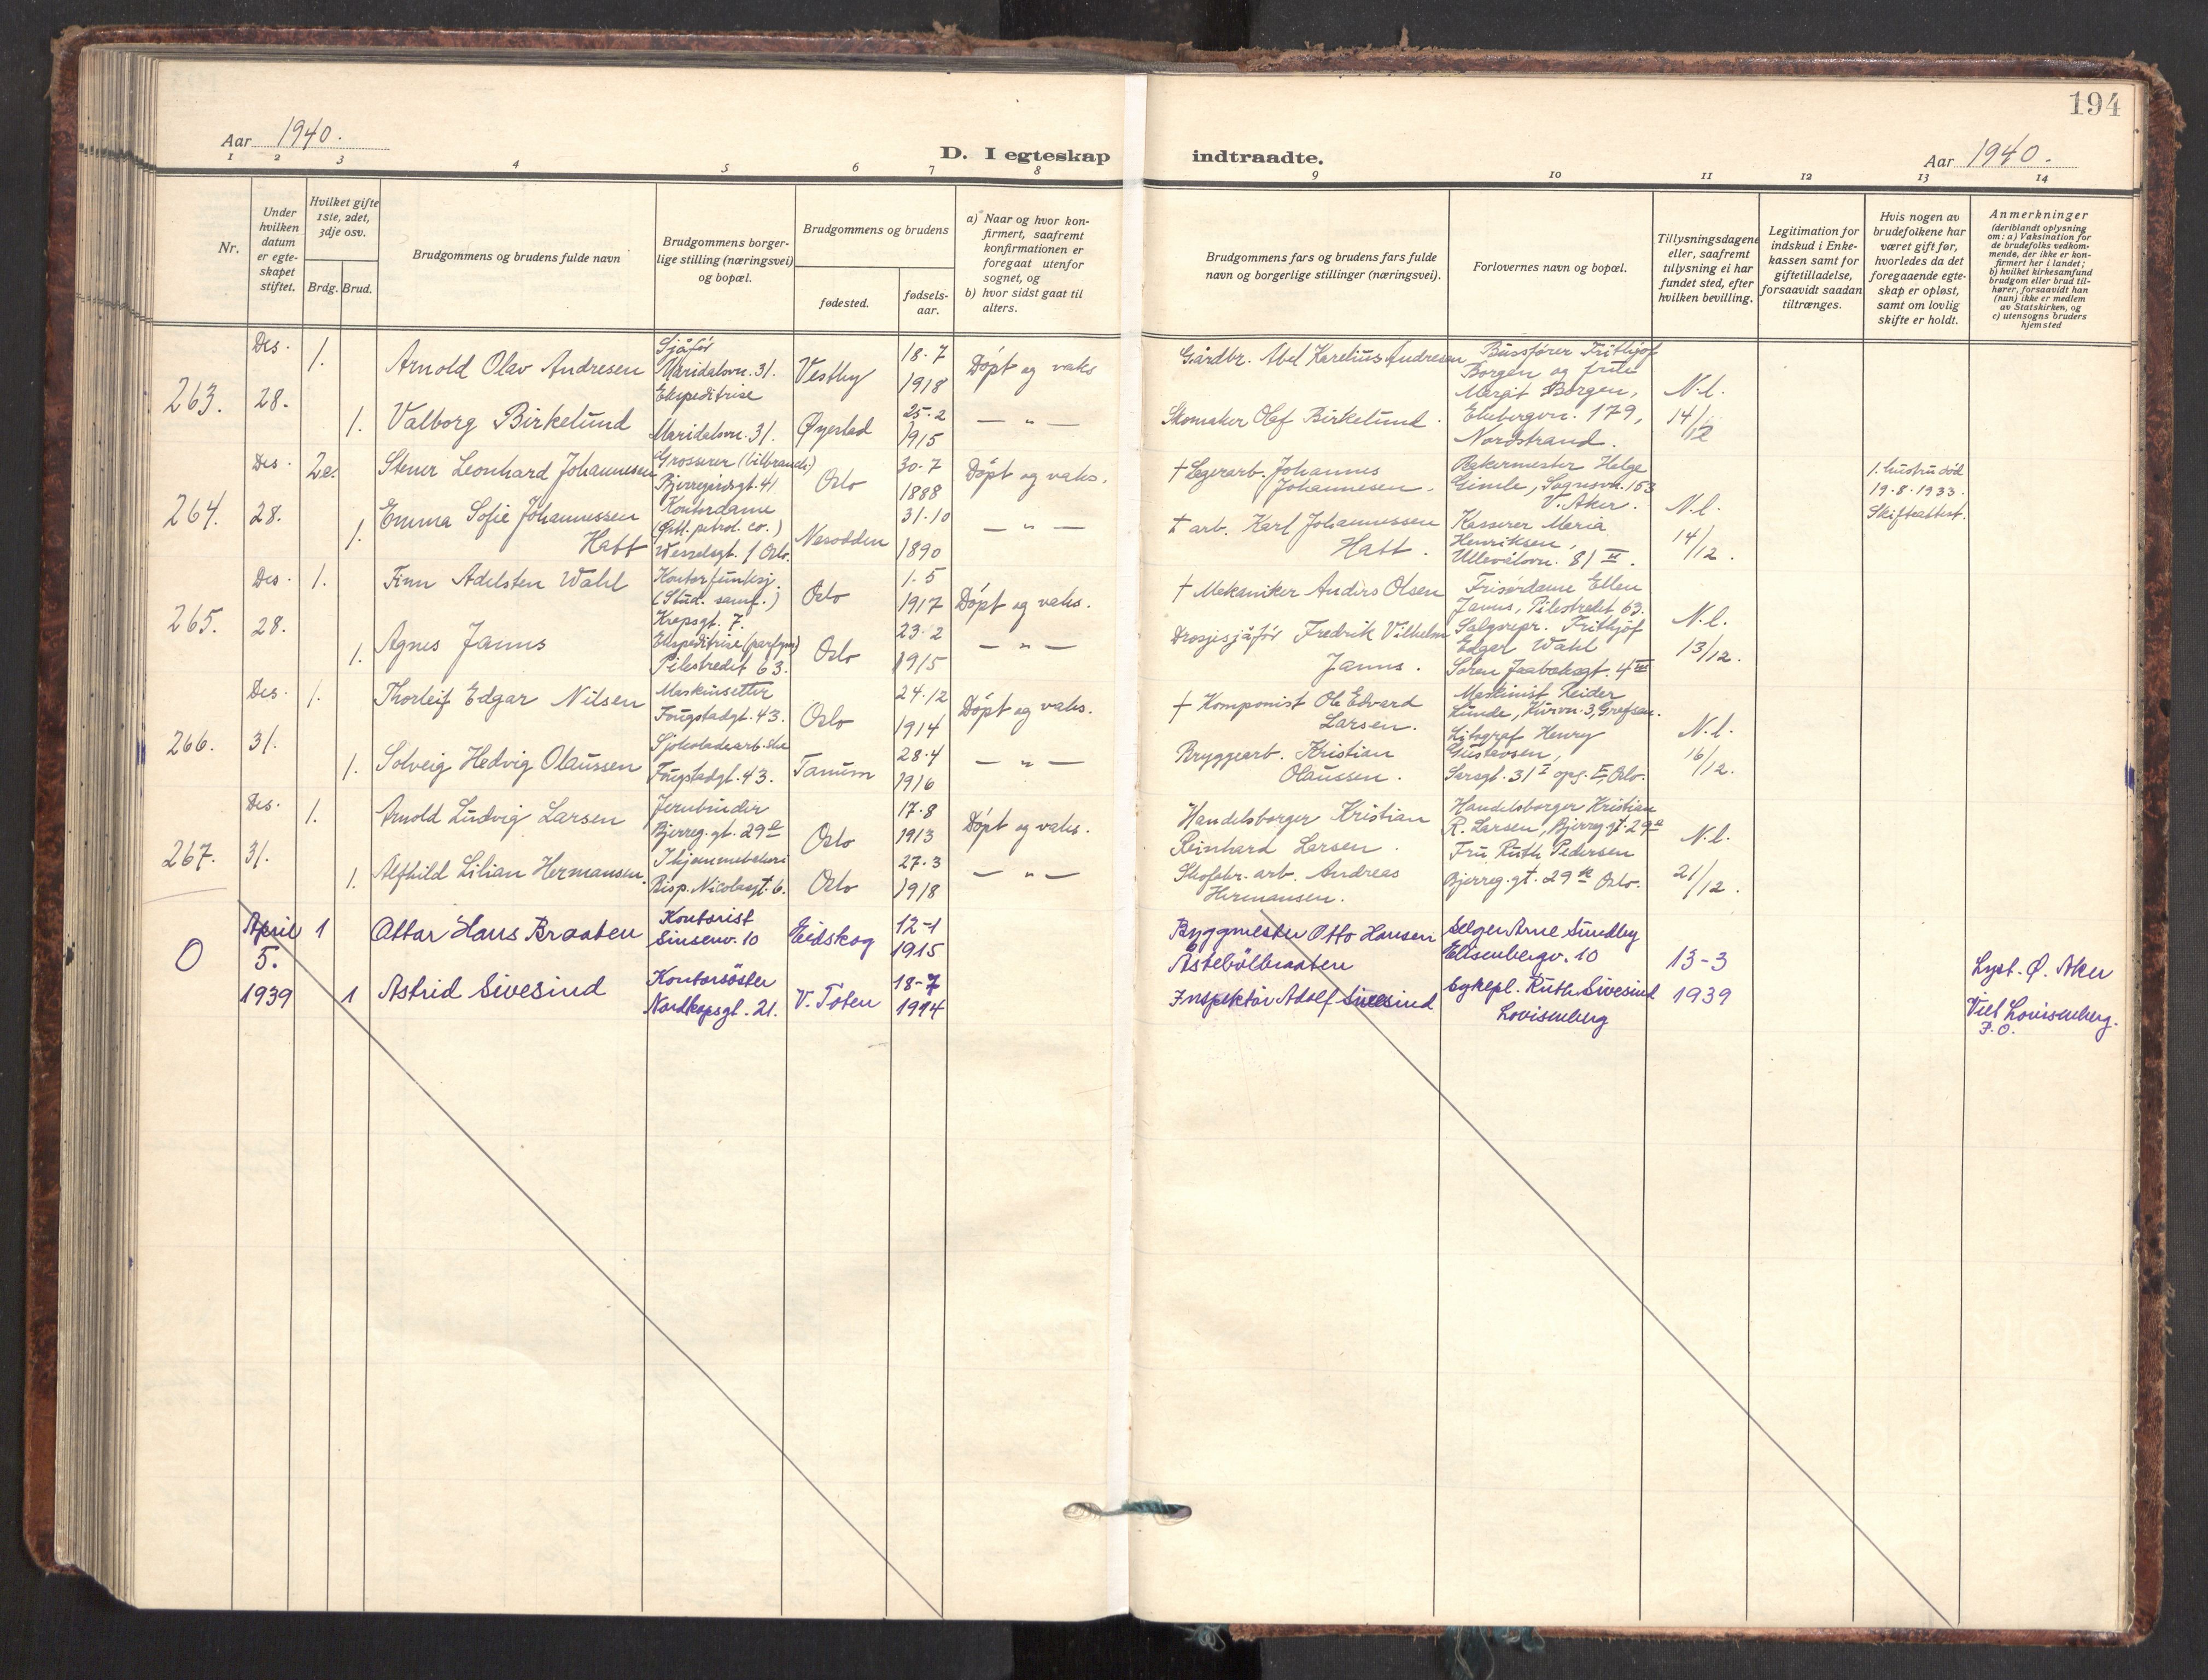 194
Aar 1940.
D. I egteskap indtraadte.
Aar 1940.
1 2 3 4 5 6 7 8 9 10 11 12 13 14
Nr.
Under hvilken datum er egteskapet stiftet.
Hvilket gifte 1ste, 2det, 3dje osv.
Brdg. Brud.
Brudgommens og brudens fulde navn
Brudgommens borgerlige stilling (næringsvei) og bopæl.
Brudgommens og brudens
fødested.
fødselsaar.
a) Naar og hvor konfirmert, saafremt konfirmationen er foregaat utenfor sognet, og
b) hvor sidst gaat til alters.
Brudgommens fars og brudens fars fulde navn og borgerlige stillinger (næringsvei).
Forlovernes navn og bopæl.
Tillysningsdagene eller, saafremt tillysning ei har fundet sted, efter hvilken bevilling.
Legitimation for indskud i Enkekassen samt for giftetilladelse, forsaavidt saadan tiltrænges.
Hvis nogen av brudefolkene har været gift før, hvorledes da det foregaaende egteskap er opløst, samt om lovlig skifte er holdt.
Anmerkninger
(deriblandt oplysning om: a) Vaksination for de brudefolks vedkommende, der ikke er konfirmert her i landet; b) hvilket kirkesamfund brudgom eller brud tilhører, forsaavidt han (hun) ikke er medlem av Statskirken, og c) utensogns bruders hjemsted
263.
Des. 28.
1.
Arnold Olav Andresen
Sjåfør
Maridalsvn. 31.
Vestby
18-7
1918
Døpt og vaks
Gårdbr. Abel Karelius Andresen
Bussfører Frithjof
Borgen og frue
Margit Borgen,
N.l.
1.
Valborg Birkelund
Ekspeditrise
Maridalsvn. 31.
Øyestad
25-2
1915
— " —
Skomaker Olaf Birkelund.
Ekebergvn. 179,
Nordstrand.
14/12
264.
Des. 28.
2.
Stener Leonhard Johannesen
Grosserer
Bjerregårdsgt. 41
Oslo
30-7
1888
Døpt og vaks.
† Lagerarb. Johannes
Johannesen.
Røkermester Helge
Gimle, Sognsvn. 153
V. Aker.
N.l.
1. hustru død
19-8-1933.
Skifteattest.
1.
Emma Sofie Johannessen
Hatt
Kontordame
(Østl. petrol. co.)
Wesselsgt. 1 Oslo.
Nesodden
31-10
1890
— " —
† arb. Karl Johannessen
Hatt.
Kasserer Maria
Henriksen,
Ullevålsvn. 81 IV.
14/12.
265.
Des. 28.
1.
Finn Adelsten Wahl
Kontorfunksj.
(Stud. samf.)
Oslo
1-5
1917
Døpt og vaks.
† Mekaniker Anders Olsen
Frisørdame Ellen
Janns, Pilestredet 63.
N.l.
1.
Agnes Janns
Ekspeditrise (parfym)
Pilestredet 63.
Oslo
23-2
1915
— " —
Drosjesjåfør Fredrik Vilhelm
Janns.
Salgsrepr. Frithjof
Edgar Wahl
13/12.
266.
Des. 31.
1.
Thorleif Edgar Nilsen
Maskinsetter
Fougstadgt. 43.
Oslo
24-12
1914
Døpt og vaks.
† Komponist Ole Edvard
Larsen.
Maskinist Reider
Lunde, Kurvn. 3, Grefsen.
N.l.
1.
Solveig Hedvig Olaussen
Sjokoladearb.ske
Fougstadgt. 43.
Tanum
28-4
1916
— " —
Bryggearb. Kristian
Olaussen.
Litograf Henry
Gustavsen,
Sarsgt. 31 I opg. F, Oslo.
16/12.
267.
Des. 31.
1.
Arnold Ludvig Larsen
Jernbinder
Bjerreg.gt. 29 a
Oslo
17-8
1913
Døpt og vaks.
Handelsborger Kristian
Reinhard Larsen.
Handelsborger Kristian
R. Larsen, Bjerreg.gt. 29 a
N.l.
1.
Alfhild Lilian Hermansen.
Bisp. Nicolasgt. 6.
Oslo
27-3
1918
— " —
Skofabr. arb. Andreas
Hermansen.
Fru Ruth Pedersen
Bjerreg.gt. 29 Oslo.
21/12.
0
April
5.
1939
1
Ottar Hans Braaten
Kontorist
Sinsenv. 10
Eidskog
12-1
1915
Byggmester Otto Hansen
Åstebölbraaten
Selger Arne Sundby
Elisenbergv. 10
13-3
1939
1
Astrid Sivesind
Kontorsöster
Nordkapsgt. 21.
V. Toten
18-7
1914
Inspektør Adolf Sivesind
Sykepl. Ruth Sivesind
Lovisenberg
Lyst. Ø. Aker
Viet Lovisenberg.
P.O.